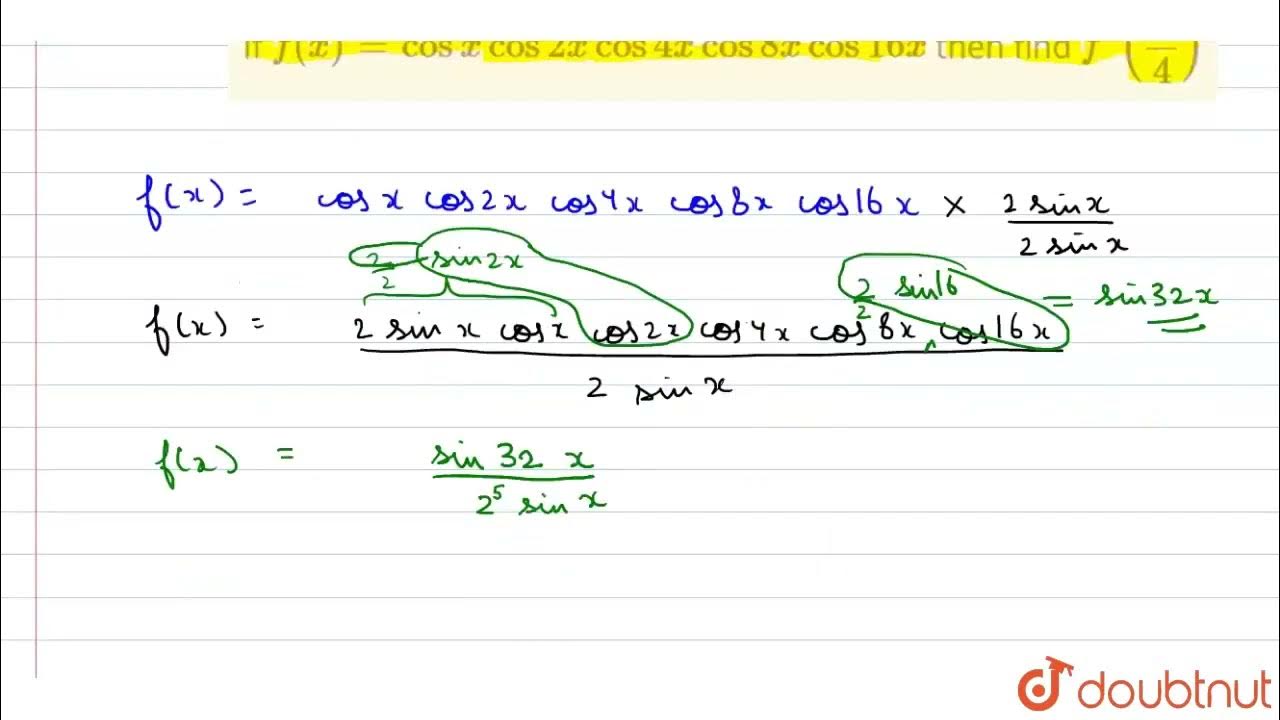 If f(x) = cos x cos 2x cos 4x cos 8x cos 16x then find f (— / 4)
f(x) = cos x cos 2x cos 4x cos 8x cos 16 x × 2 sin x / 2 sin x
2/2 sin 2x
2/2 sin 16
= sin 32 x
f(x) = 2 sin x cos x cos 2x cos 4x cos 8x cos 16 x / 2 sin x
f(x) = sin 32 x / 2^5 sin x
doubtnut